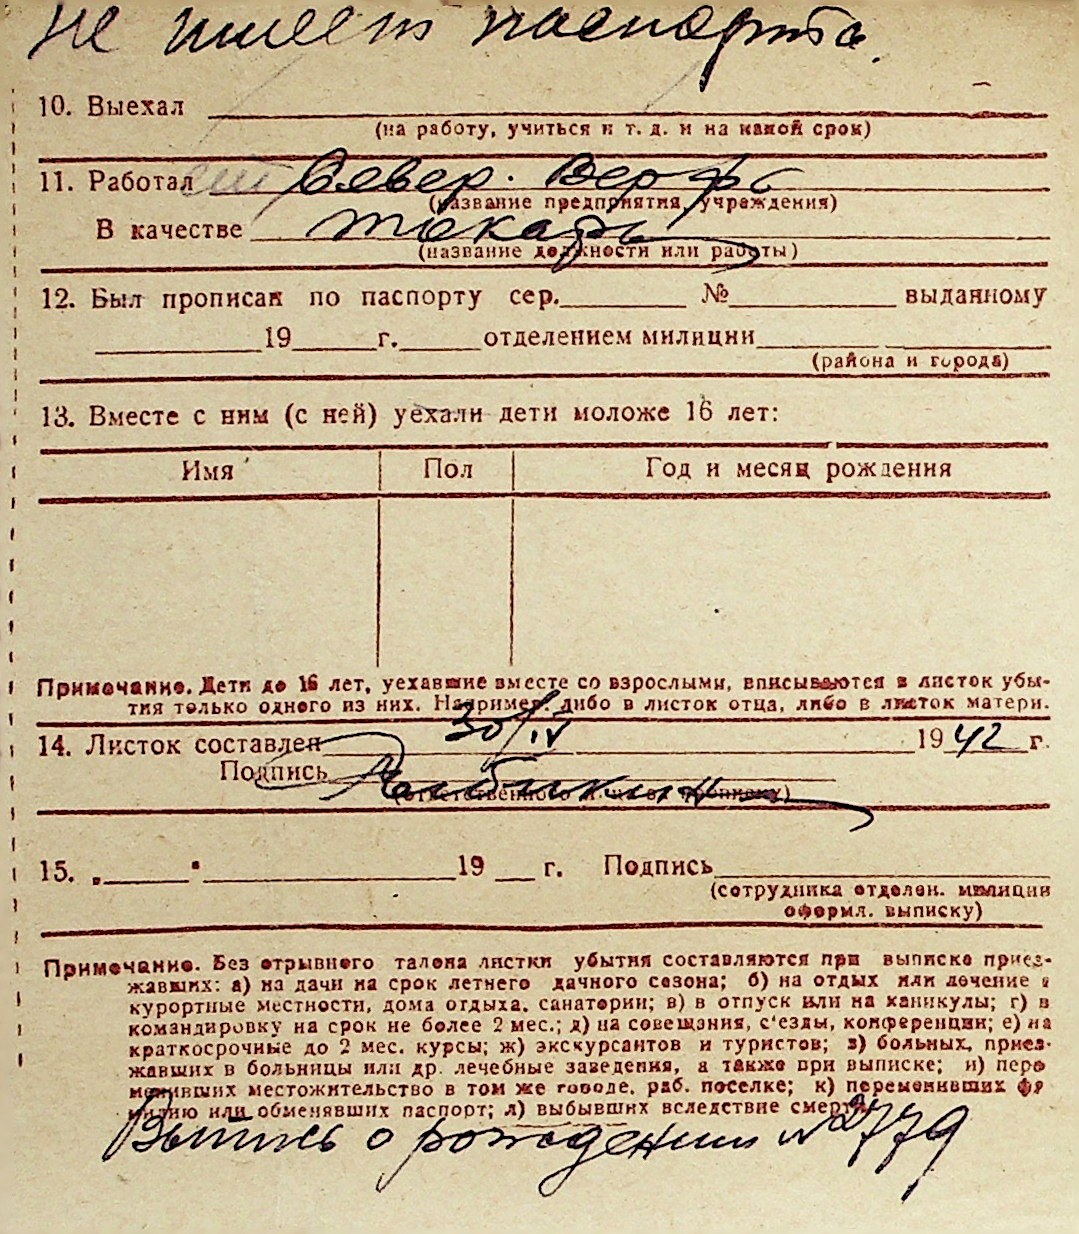 не имеет паспорта.
10. Выехал
(на работу, учиться и т. д. и на какой срок)
11. Работал Север. Верфь
(название предприятия, учреждения)
В качестве токарь
(название должности или работы)
12. Был прописан по паспорту сер. № выданному
19 г. отделением милиции
(района и города)
13. Вместе с ним (с ней) уехали дети моложе 16 лет:
Имя Пол Год и месяц рождения
Примечание. Дети до 16 лет, уехавшие вместе со взрослыми, вписываются в листок убы-
тия только одного из них. Например: либо в листок отца, либо в листок матери.
14. Листок составлен 30/IV 1942 г.
Подпись
(ответственного лица за прописку)
15. „ " 19 г. Подпись
(сотрудника отделен. милиции
оформл. выписку)
Примечание. Без отрывного талона листки убытия составляются при выписке приез-
жавших: а) на дачи на срок летнего дачного сезона; б) на отдых или лечение в
курортные местности, дома отдыха, санатории; в) в отпуск или на каникулы; г) в
командировку на срок не более 2 мес.; д) на совещания, с'езды, конференции; е) на
краткосрочные до 2 мес. курсы; ж) экскурсантов и туристов; з) больных, приез-
жавших в больницы или др. лечебные заведения, а также при выписке; и) пере
менивших местожительство в том же городе, раб. поселке; к) переменивших фа
милию или обменявших паспорт; л) выбывших вследствие смерти.
Выпись о рождении № 2779